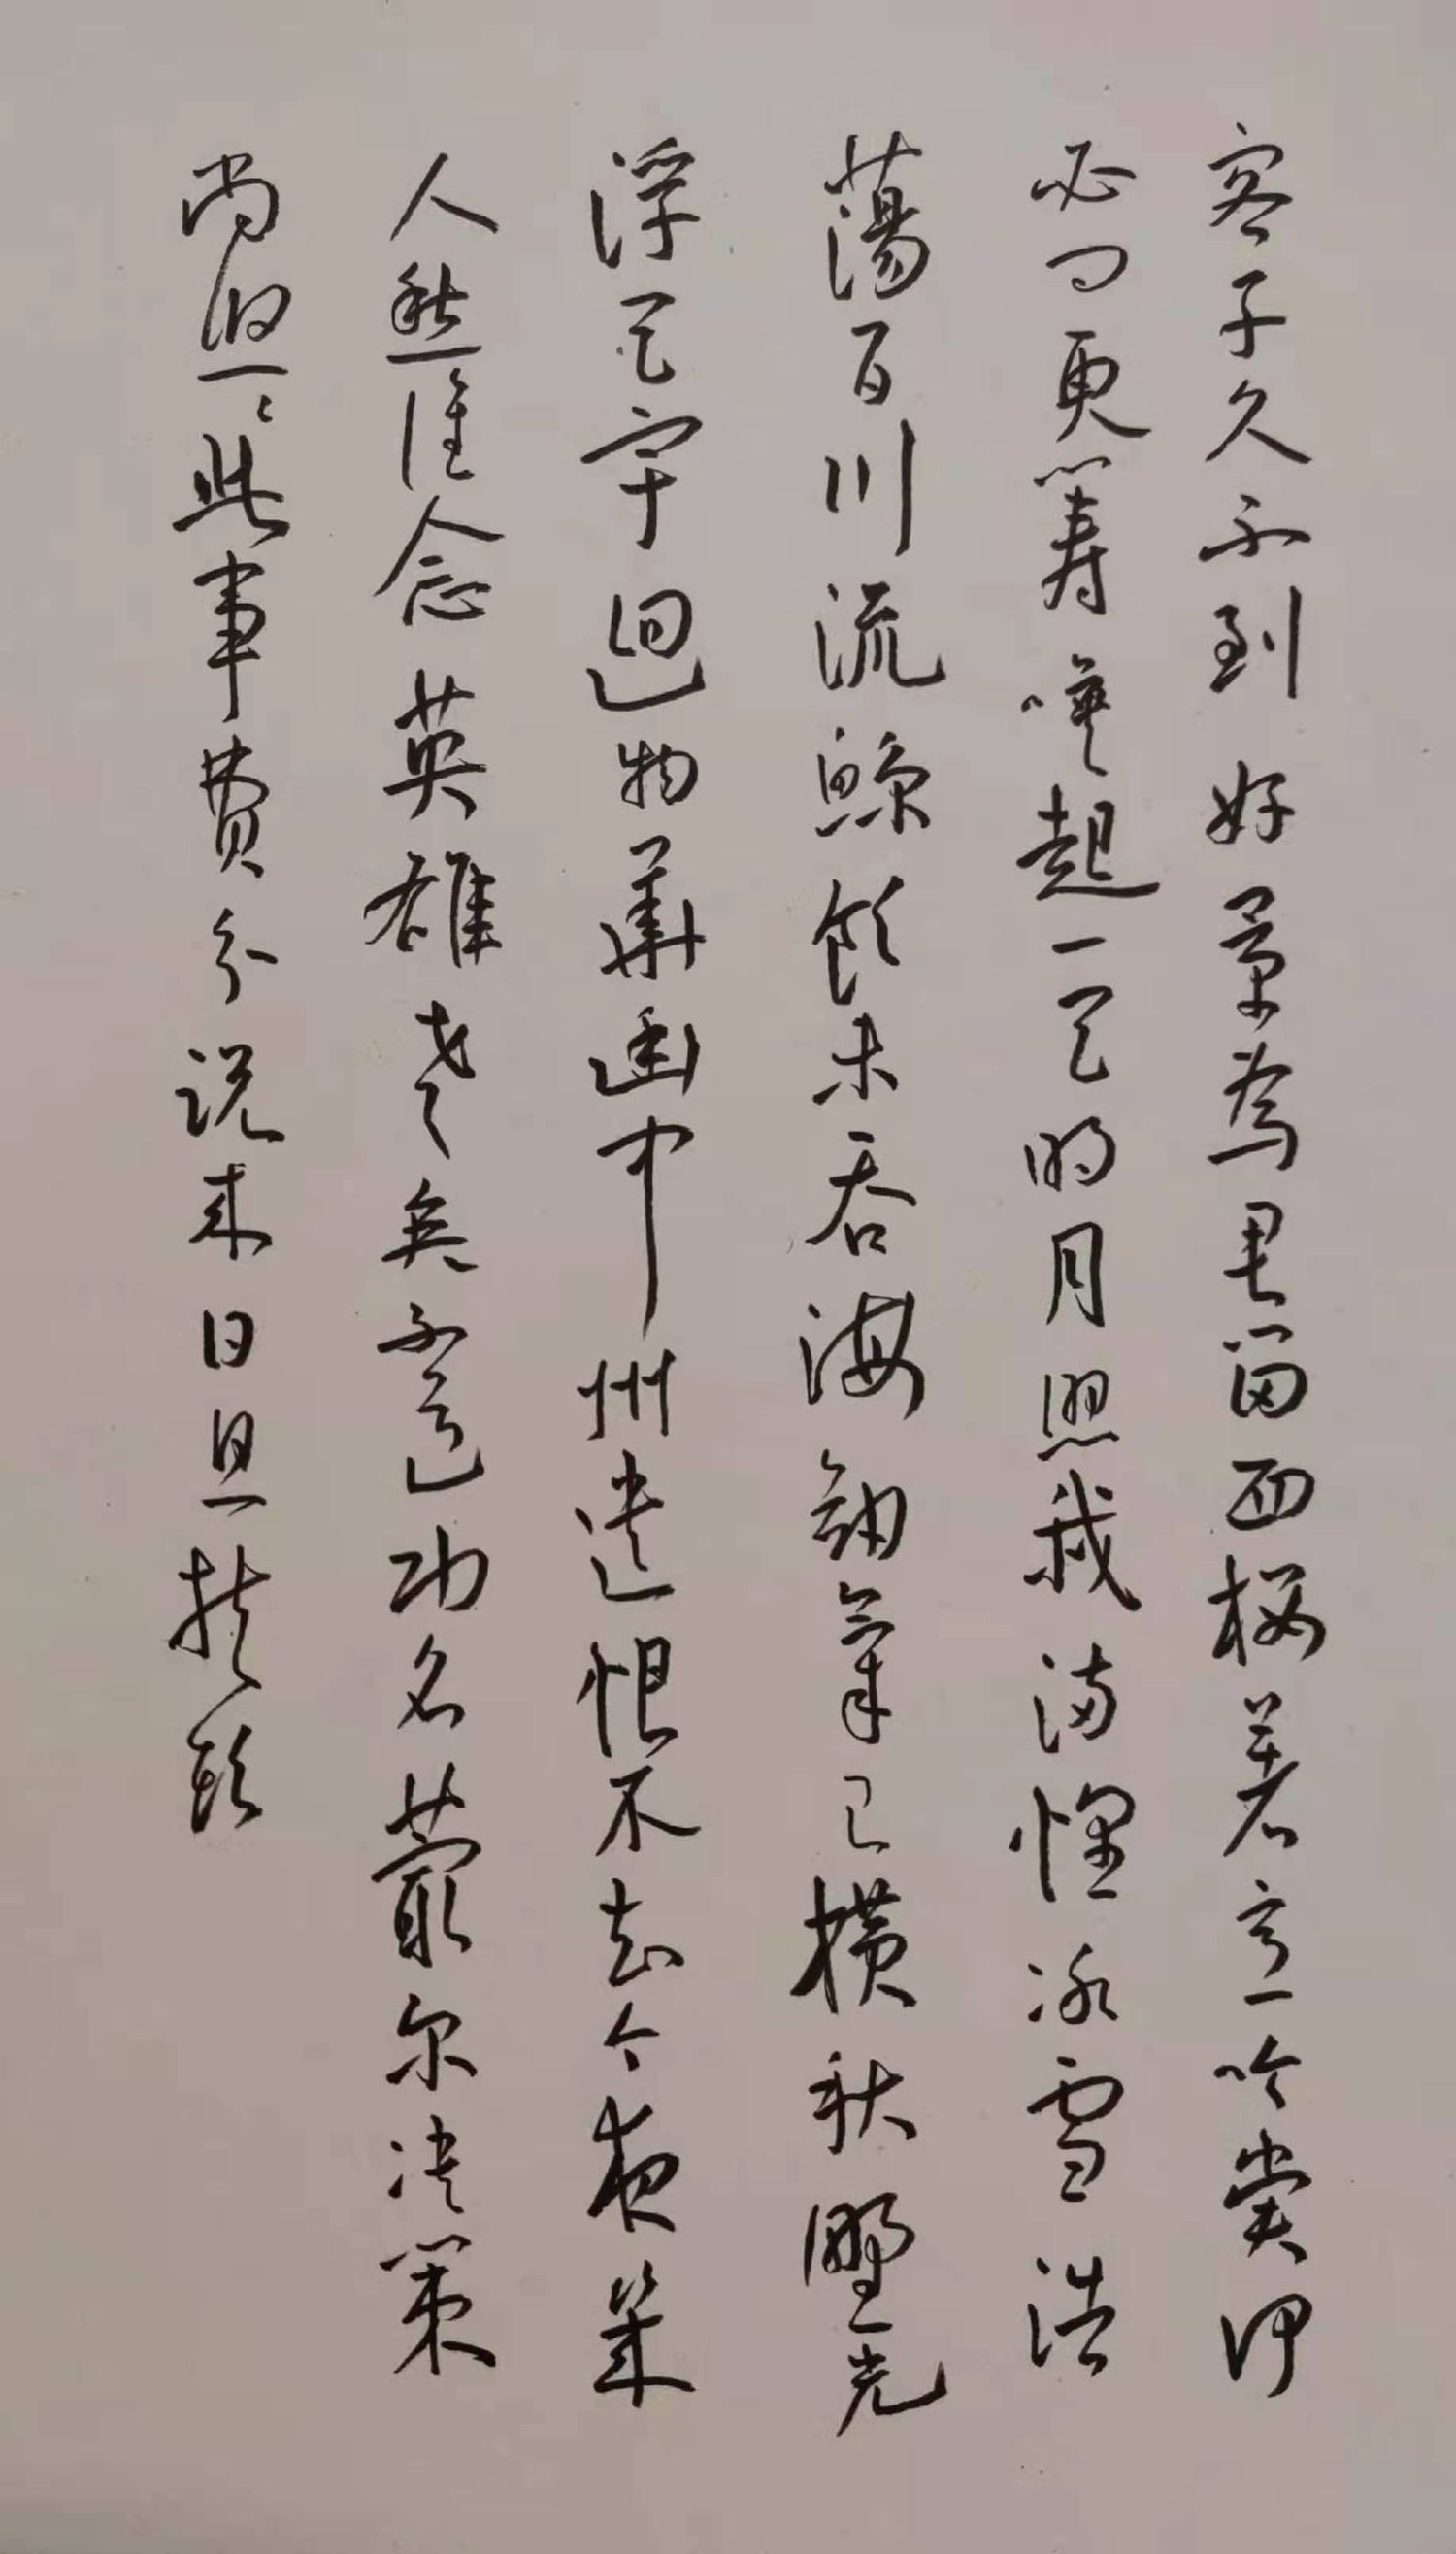 客子久不到好景為君留西楼著意吟赏何
必问更籌喚起一天明月照我满懷冰雪浩
蕩百川流鯨飲未吞海劍氣已横秋野光
浮天宇迥物華幽中州遗恨不知今夜幾
人愁誰念英雄老矣不道功名蕞尔决策
尚悠悠此事費分说来日且扶頭